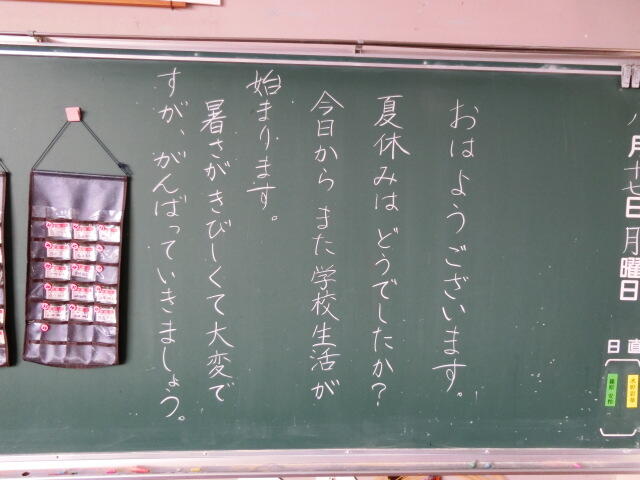 八月十七日月曜日
日直
おはようございます。
夏休みは どうでしたか?
今日から また学校生活が
始まります。
暑さがきびしくて大変で
すが、がんばっていきましょう。